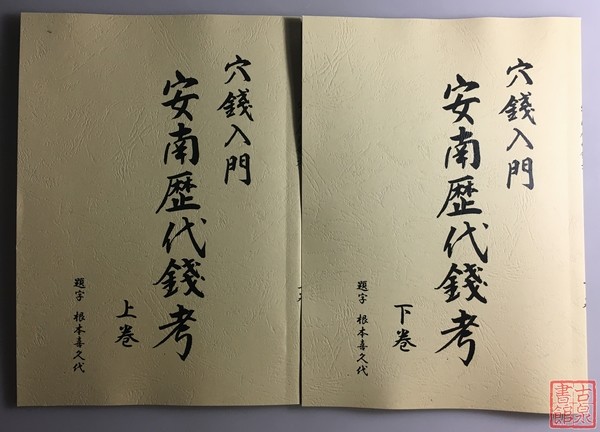 穴錢入門
安南歷代錢考
上巻
題字 根本喜久代
穴錢入門
安南歷代錢考
下巻
題字 根本喜久代
古泉
書館